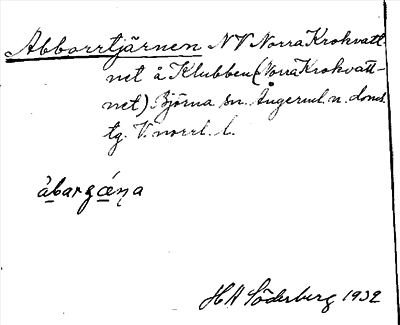 Abborrtjärnen NV Norra Krokvatt-
net å Klubben (Norra Krokvatt-
net). Björna sn. Ångerml. n. doms.
tg. V.norrl. l.
àbargǽn̥a
H A Söderberg 1932